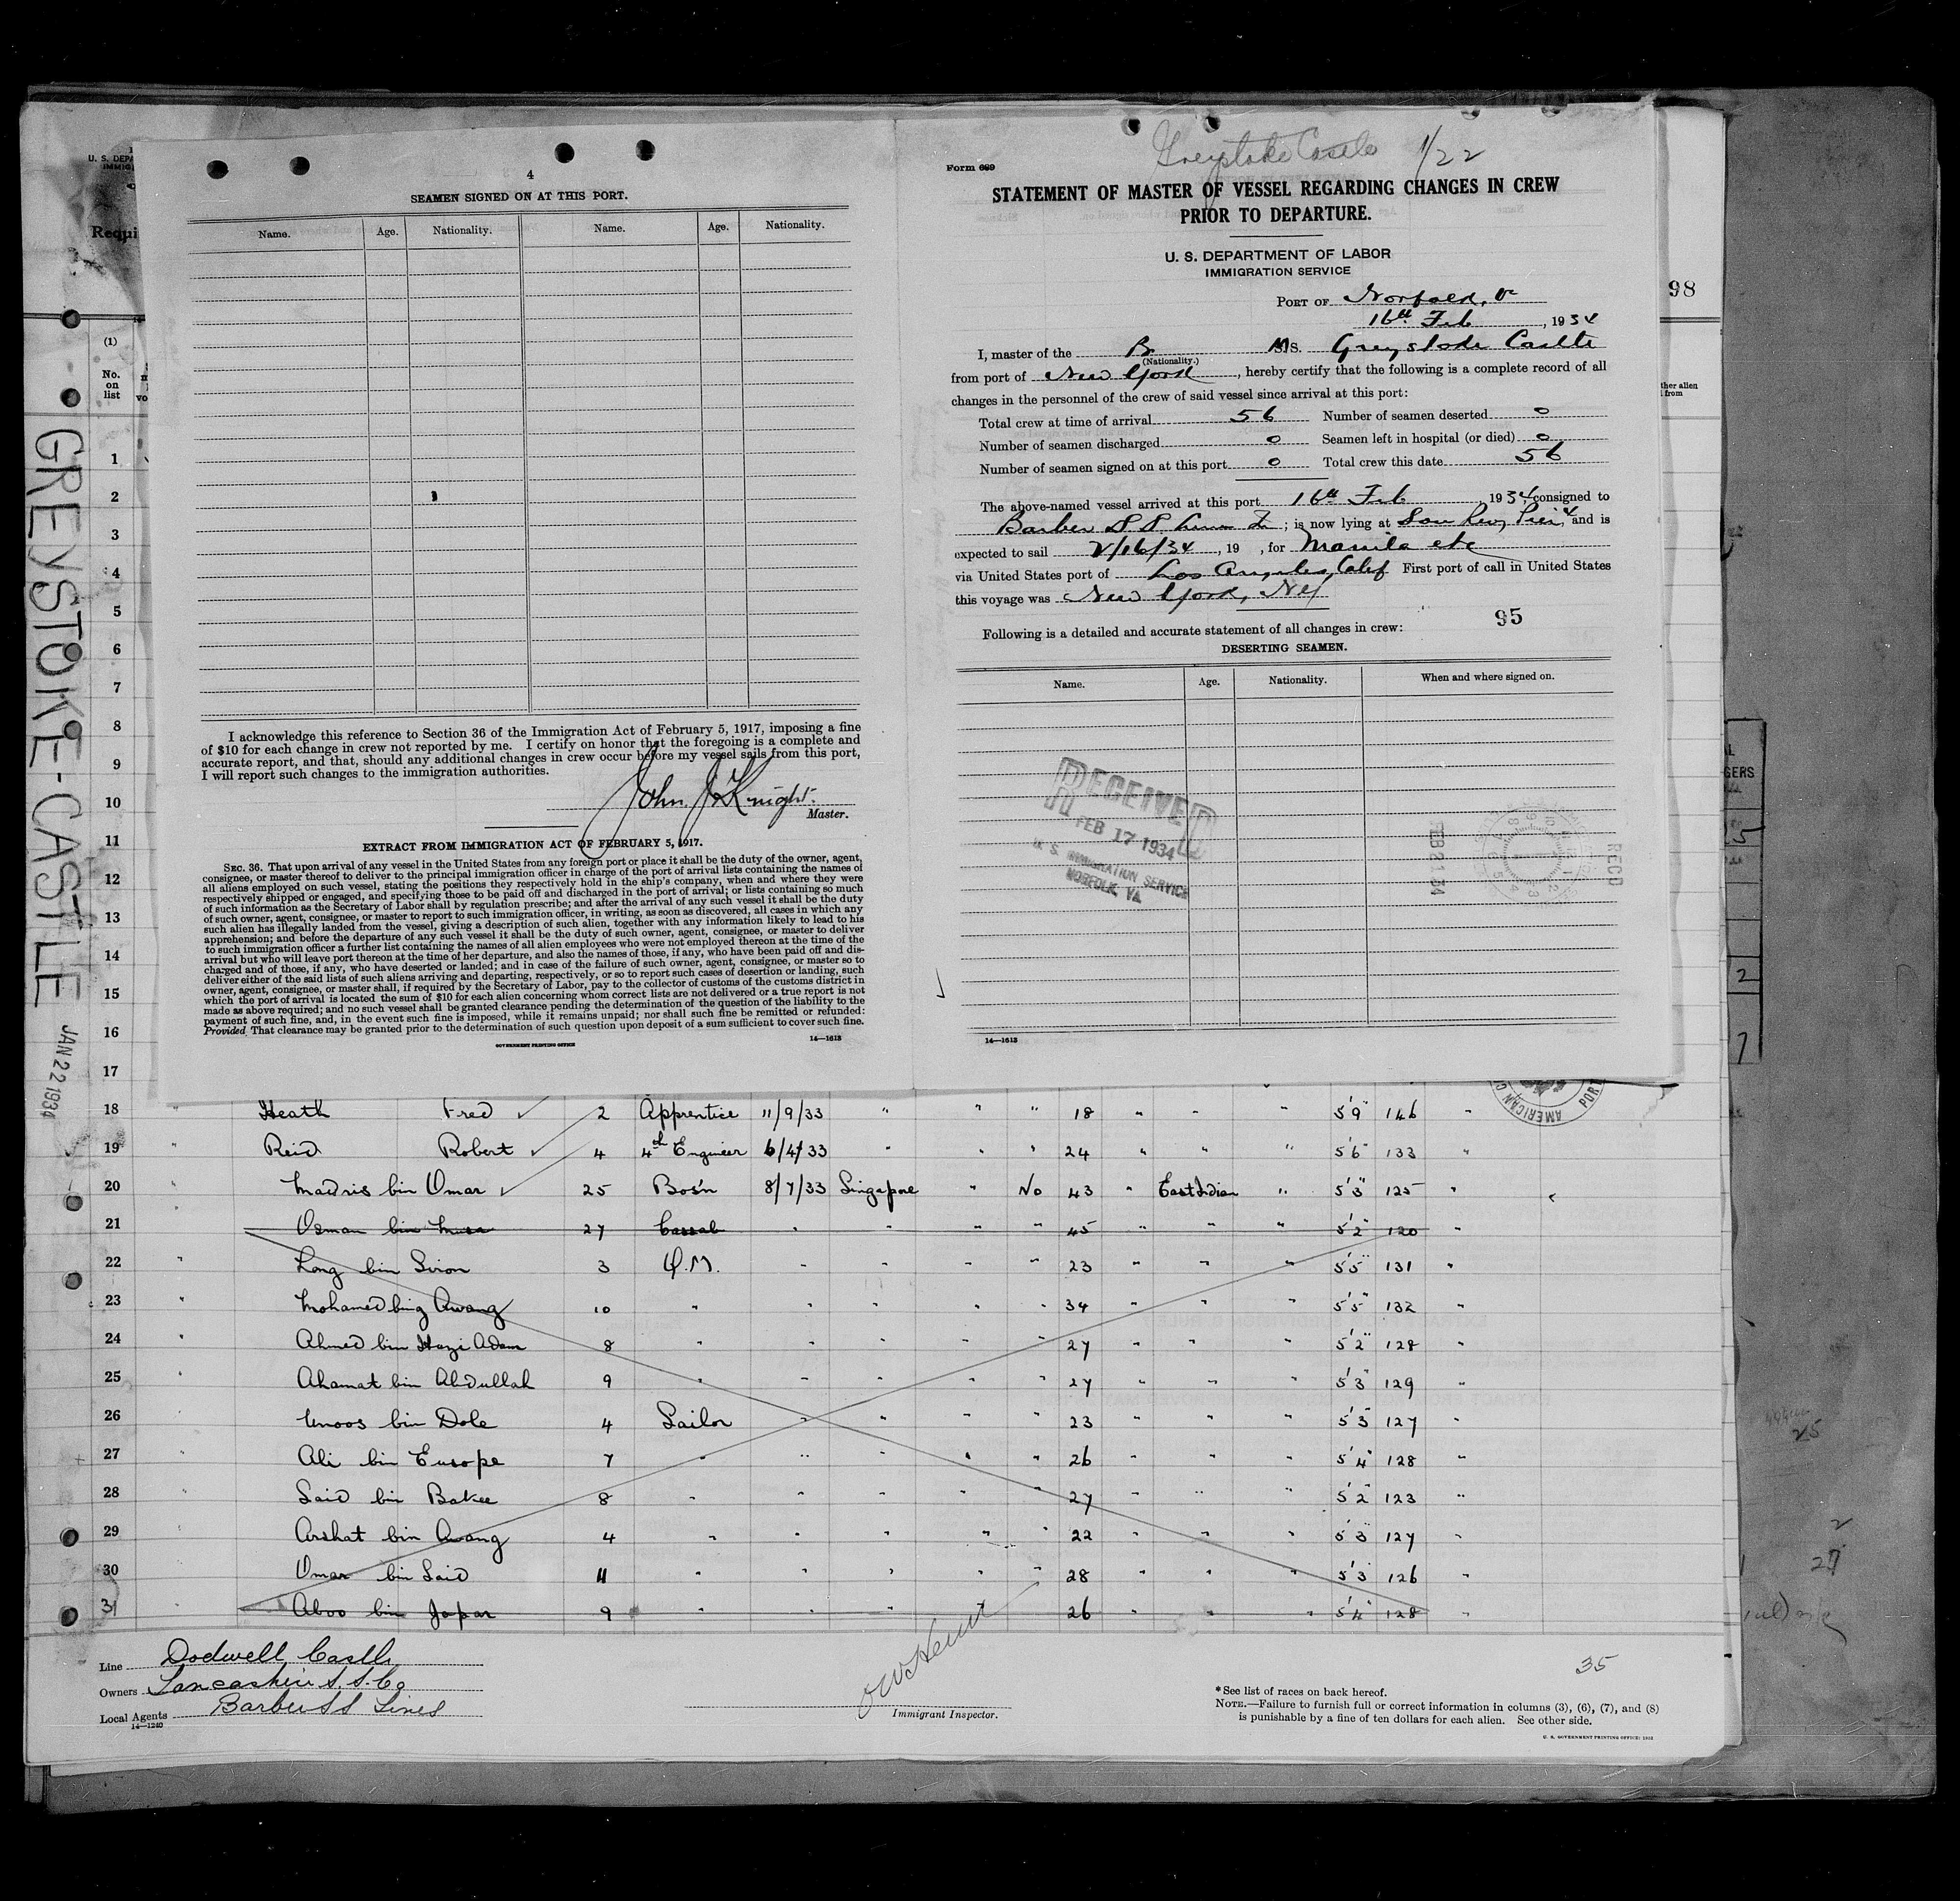 4
SEAMEN SIGNED ON AT THIS PORT.
Name. Age. Nationality. Name. Age. Nationality.
I acknowledge this reference to Section 36 of the Immigration Act of February 5, 1917, imposing a fine
of $10 for each change in crew not reported by me. I certify on honor that the foregoing is a complete and
accurate report, and that, should any additional changes in crew occur before my vessel sails from this port,
I will report such changes to the immigration authorities.
John J Knight
Master.
EXTRACT FROM IMMIGRATION ACT OF FEBRUARY 5, 1917.
SEC. 36. That upon arrival of any vessel in the United States from any foreign port or place it shall be the duty of the owner, agent,
consignee, or master thereof to deliver to the principal immigration officer in charge of the port of arrival lists containing the names of
all aliens employed on such vessel, stating the positions they respectively hold in the ship's company, when and where they were
respectively shipped or engaged, and specifying those to be paid off and discharged in the port of arrival; or lists containing so much
of such information as the Secretary of Labor shall by regulation prescribe; and after the arrival of any such vessel it shall be the duty
of such owner, agent, consignee, or master to report to such immigration officer, in writing, as soon as discovered, all cases in which any
such alien has illegally landed from the vessel, giving a description of such alien, together with any information likely to lead to his
apprehension; and before the departure of any such vessel it shall be the duty of such owner, agent, consignee, or master to deliver
to such immigration officer a further list containing the names of all alien employees who were not employed thereon at the time of the
arrival but who will leave port thereon at the time of her departure, and also the names of those, if any, who have been paid off and dis-
charged and of those, if any, who have deserted or landed; and in case of the failure of such owner, agent, consignee, or master so to
deliver either of the said lists of such aliens arriving and departing, respectively, or so to report such cases of desertion or landing, such
owner, agent, consignee, or master shall, if required by the Secretary of Labor, pay to the collector of customs of the customs district in
which the port of arrival is located the sum of $10 for each alien concerning whom correct lists are not delivered or a true report is not
made as above required; and no such vessel shall be granted clearance pending the determination of the question of the liability to the
payment of such fine, and, in the event such fine is imposed, while it remains unpaid; nor shall such fine be remitted or refunded:
Provided That clearance may be granted prior to the determination of such question upon deposit of a sum sufficient to cover such fine.
GOVERNMENT PRINTING OFFICE 14—1613
Greystoke Castle 1/22
Form 689
STATEMENT OF MASTER OF VESSEL REGARDING CHANGES IN CREW
PRIOR TO DEPARTURE.
U. S. DEPARTMENT OF LABOR
IMMIGRATION SERVICE
PORT OF Norfolk, Va
16th Feb, 1934
I, master of the Br MS. Greystoke Castle
(Nationality.)
from port of New York, hereby certify that the following is a complete record of all
changes in the personnel of the crew of said vessel since arrival at this port:
Total crew at time of arrival 56 Number of seamen deserted 0
Number of seamen discharged 0 Seamen left in hospital (or died) 0
Number of seamen signed on at this port 0 Total crew this date 56
The above-named vessel arrived at this port 16th Feb, 1934, consigned to
Barber S S Lines ; is now lying at Pier 4 and is
expected to sail 2/16/34, 19 , for Manila etc
via United States port of Los Angeles, Calif First port of call in United States
this voyage was New York, NY
95
Following is a detailed and accurate statement of all changes in crew:
DESERTING SEAMEN.
Name. Age. Nationality. When and where signed on.
RECEIVED
FEB 17 1934
U. S. IMMIGRATION SERVICE
NORFOLK, VA
FEB 21 34
RECD
14—1613
98
U. S. DEPA
IMMIG
Requi
(1)
No.
on
list
ther alien
from
GREYSTOKE-CASTLE
JAN 22 1934
1
2
3
4
5
6
7
8
9
10
11
12
13
14
15
16
17
AMERICAN PORT
18 " Heath Fred 2 Apprentice 11/9/33 " " " 18 " " " 5'9" 146 "
19 " Reid Robert 4 4th Engineer 6/4/33 " " " 24 " " " 5'6" 133 "
20 " Madris bin Omar 25 Bos'n 8/7/33 Singapore " No 43 " East Indian " 5'3" 125 "
21 Osman bin Musa 27 Cassab " " " " 45 " " " 5'2" 120 "
22 " Long bin Siron 3 Q.M. " " " " 23 " " " 5'5" 131 "
23 " Mohamed bing Awang 10 " " " " " 34 " " " 5'5" 132 "
24 " Ahmed bin Hazi Adam 8 " " " " " 27 " " " 5'2" 128 "
25 " Ahamat bin Abdullah 9 " " " " " 27 " " " 5'3" 129 "
26 " Unoos bin Dole 4 Sailor " " " " 23 " " " 5'3" 127 "
27 " Ali bin Europe 7 " " " " " 26 " " " 5'4" 128 "
28 " Said bin Bakee 8 " " " " " 27 " " " 5'2" 123 "
29 " Arshat bin Awang 4 " " " " " 22 " " " 5'3" 127 "
30 " Omar bin Said 11 " " " " " 28 " " " 5'3" 126 "
31 " Aboo bin Japar 9 " " " " " 26 " " " 5'4" 128 "
Line Dodwell Castle
Owners Lancashire S. S. Co
Local Agents Barber SS Lines
14—1240
Immigrant Inspector.
35
*See list of races on back hereof.
NOTE.—Failure to furnish full or correct information in columns (3), (6), (7), and (8)
is punishable by a fine of ten dollars for each alien. See other side.
U. S. GOVERNMENT PRINTING OFFICE: 1932
GERS
2
7
25
2
27